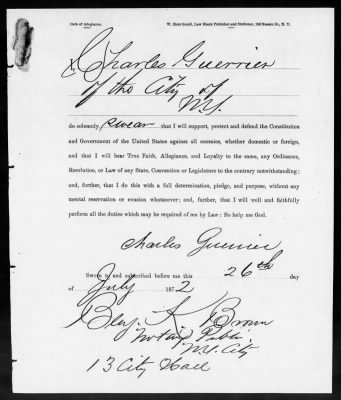 Oath of Allegiance. W. Reid Gould, Law Blank Publisher and Stationer, 168 Nassau St., N. Y.
I Charles Guerrier
of the City of
N.Y.
do solemnly swear that I will support, protect and defend the Constitution
and Government of the United States against all enemies, whether domestic or foreign,
and that I will bear True Faith, Allegiance, and Loyalty to the same, any Ordinance,
Resolution, or Law of any State, Convention or Legislature to the contrary notwithstanding;
and, further, that I do this with a full determination, pledge, and purpose, without any
mental reservation or evasion whatsoever; and, further, that I will well and faithfully
perform all the duties which may be required of me by Law: So help me God.
Charles Guerrier
Sworn to and subscribed before me this 26th day
of July 1872
Benj. K Brown
Notary Public
N.Y. City
13 City Hall